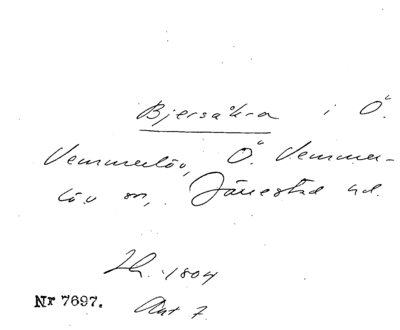 Bjersåkra i Ö.
Vemmerlöv, Ö. Vemmer-
löv sn, Järrestad hd.
Lh. 1804
Nr 7697. Akt 7.